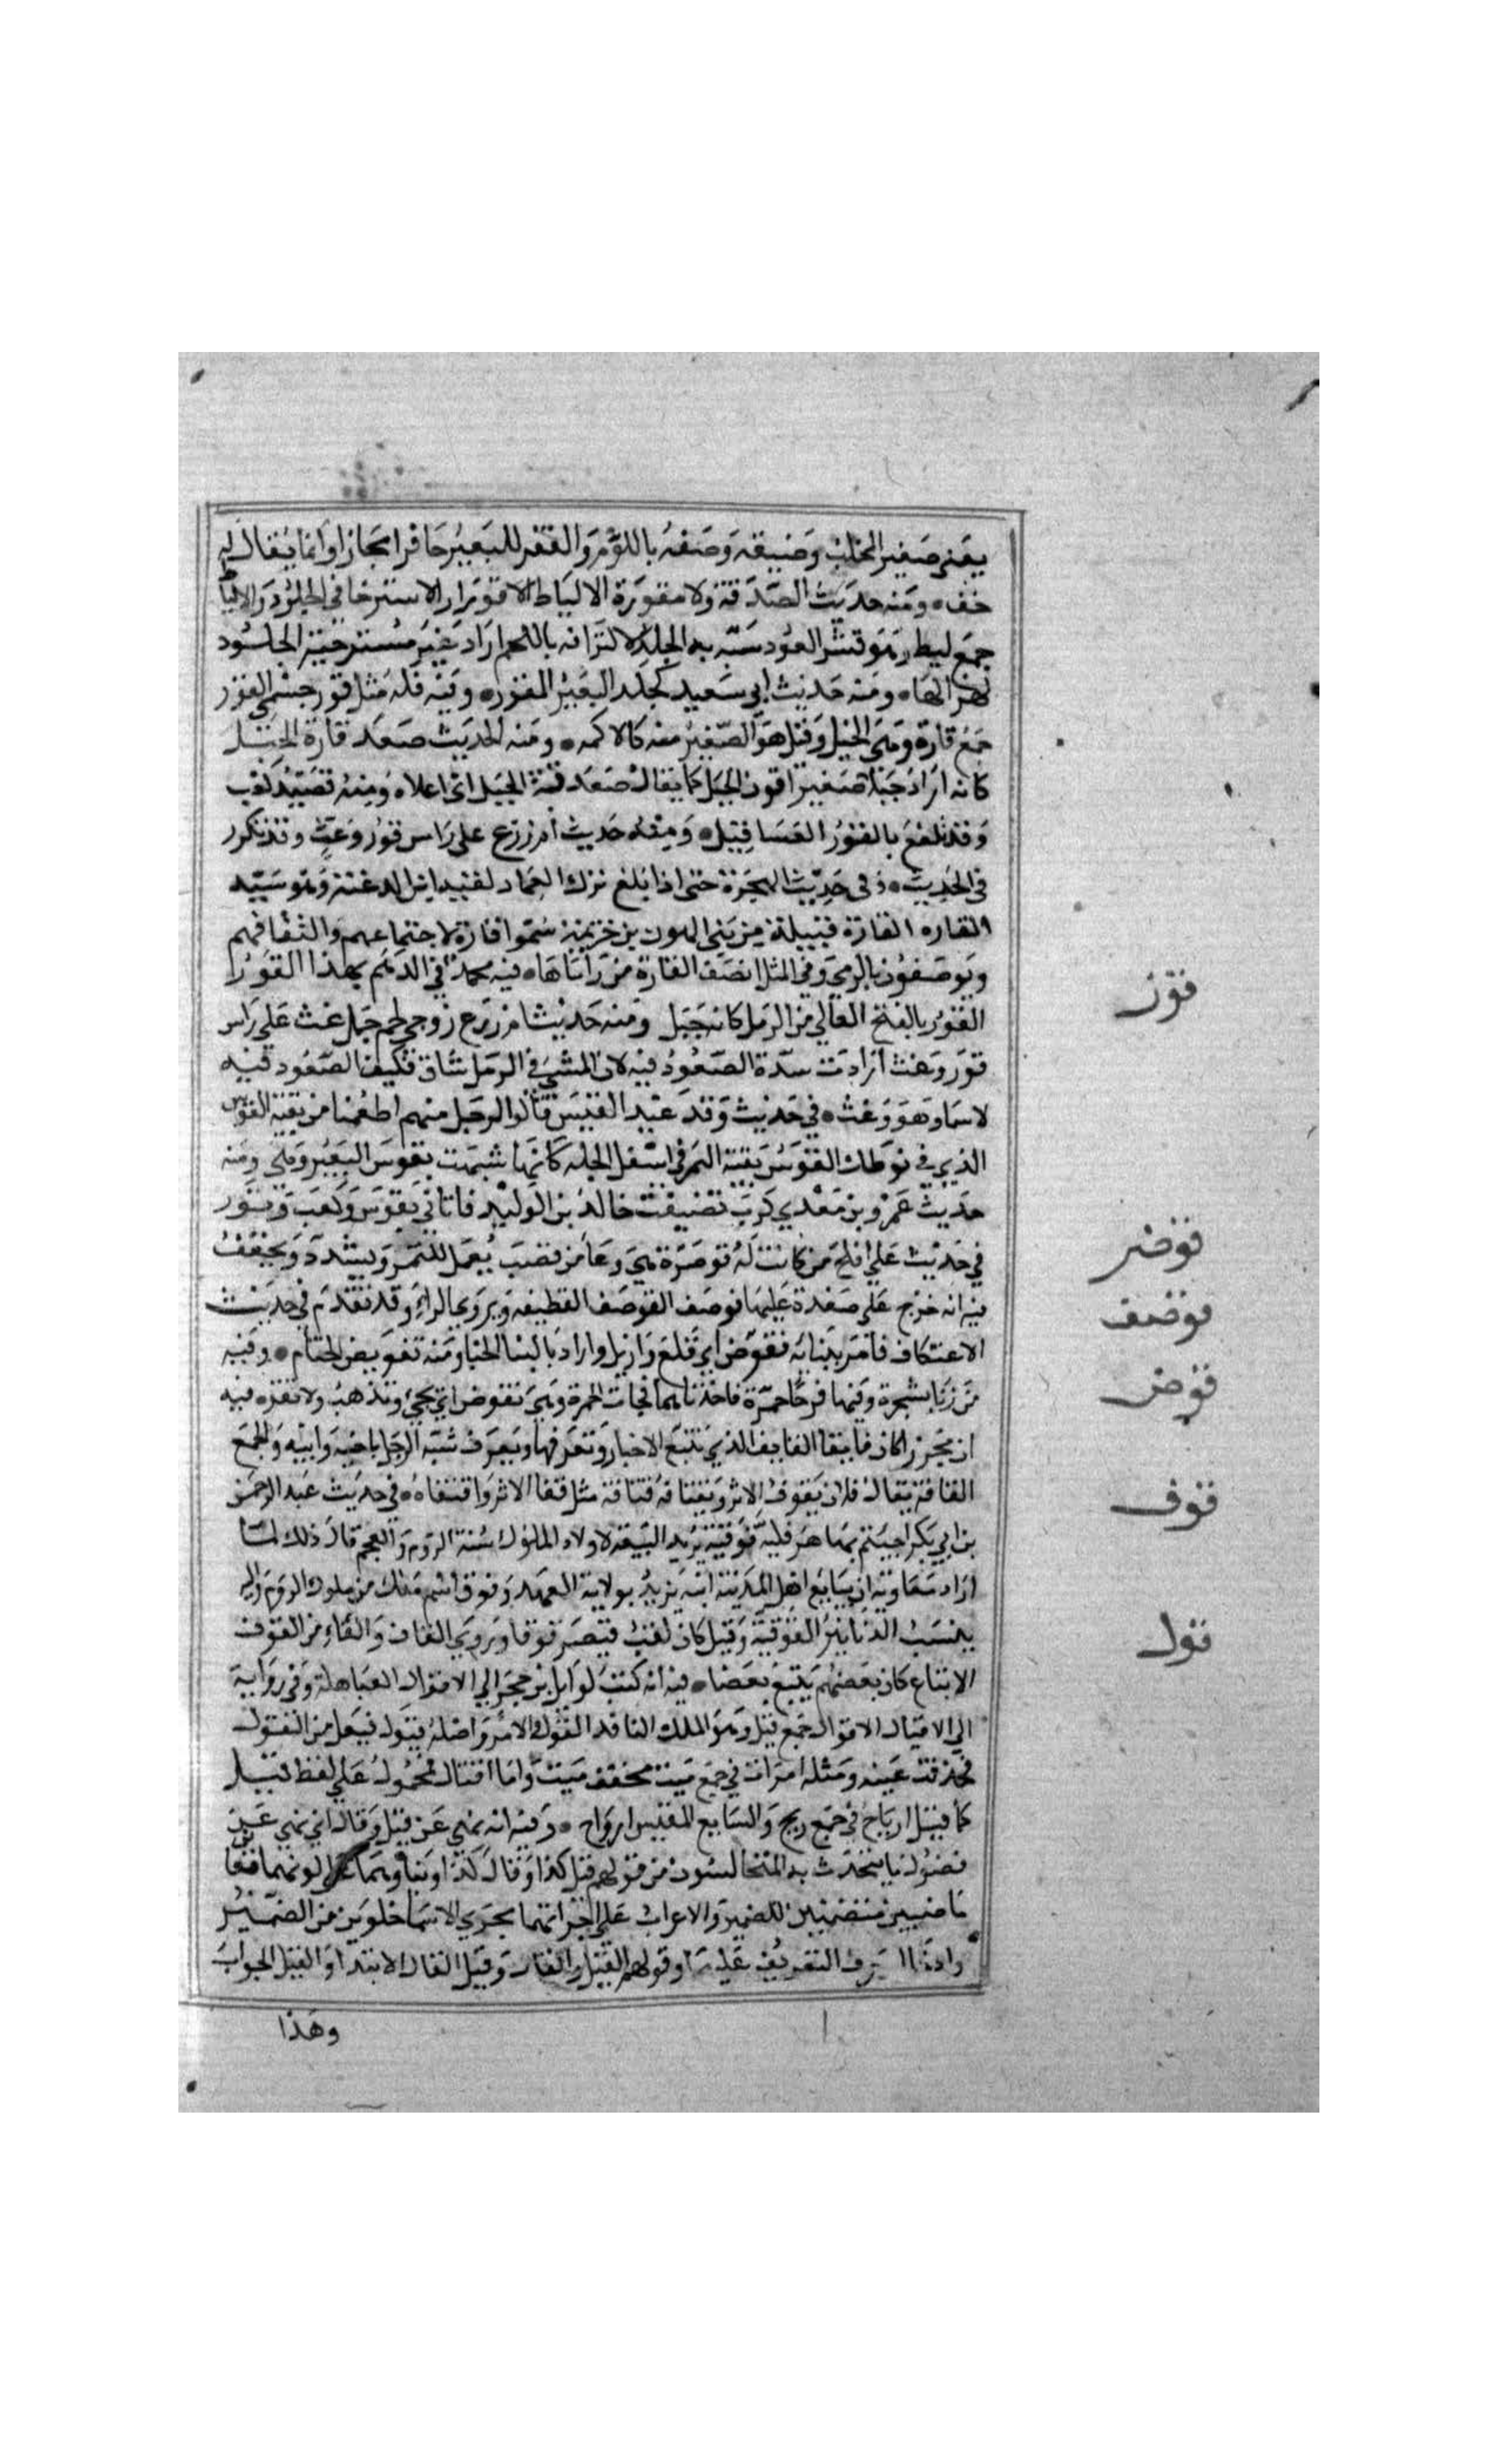 يعني صغير المحلب وضيقه وصفه باللؤم والفقر للبعير حافرا مجازا وانما يقال له
خف ومنه حديث الصدقة ولا مقورة الالياط الاقورار الاسترخا في الجلود والالياط
جمع ليط وهو قشر العود شبه به الجلد لالتزاقه باللحم اراد غير مسترخية الجلود
لهزالها ومنه حديث ابي سعيد كجلد البعير المقور وفيه فله مثل قور حسمى القور
جمع قارة وهي الجبل وقيل هو الصغير منه كالاكمه ومنه الحديث صعد قارة الجبل
كانه اراد جبلا صغيرا فوق الجبل كما يقال صعد قنة الجبل اي اعلاه ومنه قصيد كعب
وقد تلفع بالقور العساقيل ومنه حديث ام زرع على راس قور وعث وقد تكرر
في الحديث وفي حديث الهجرة حتى اذا بلغ برك الغماد لقيه ابن الدغنة وهو سيد
القاره القارة قبيلة من بني الهون بن خزيمة سموا قارة لاجتماعهم والتفافهم
ويوصفون بالرمي وفي المثل انصف القارة من راماها فيه محمد في الدهم بهذا القوز
القوز بالفتح العالي من الرمل كانه جبل ومنه حديث ام زرع زوجي لحم جمل غث على راس
قوز وعث ارادت شدة الصعود فيه لان المشي في الرمل شاق فكيف الصعود فيه
لاسيما وهو وعث في حديث وفد عبد القيس قالوا لرجل منهم اطعمنا من بقية القوس
الذي في نوطك القوس بقية التمر في اسفل الجله كانها شبهت بقوس البعير وهي ومنه
حديث عمرو بن معدي كرب تضيفت خالد بن الوليد فاتاني بقوس وكعب وثور
في حديث علي افلح من كانت له قوصرة هي وعا من قصب يعمل للتمر ويشدد ويخفف
فيه انه خرج على صعدة عليها قوصف القوصف القطيفه ويروى بالراء وقد تقدم في حديث
الاعتكاف فامر ببنائه فقوض اي قلع وازيل واراد بالبنا الخبا ومنه تقويض الخيام وفيه
مررنا بشجرة وفيها فرخا حمرة فاخذناهما فجات الحمرة وهي تقوض اي تجيء وتذهب ولا تقر فيه
ان مجززا كان قايفا القايف الذي يتتبع الاخبار وتعرفها ويعرف شبه الرجل باخيه وابيه والجمع
القافة يقال فلان يقوف الاثر ويقتافه قيافة مثل قفا الاثر واقتفاه في حديث عبد الرحمن
بن ابي بكر اجيتم بها هرقلية قوقية يريد البيعة لاولاد الملوك سنة الروم والعجم قال ذلك لما
اراد معاوية ان يبايع اهل المدينة ابنه يزيد بولاية العهد وقوق اسم ملك من ملوك الروم واليه
ينسب الدنانير القوقية وقيل كان لقب قيصر قوقا ويروى بالقاف والفاء من القوف
الاتباع كان بعضهم يتبع بعضا فيه انه كتب لوايل بن حجر الى الاقوال العباهلة وفي رواية
الى الاقيال الاقوال جمع قيل وهو الملك النافد القول والامر واصله قيول فيعل من القول
فحذفت عينه ومثله اموات في جمع ميت مخفف ميت واما اقيال فمحمول على لفظ قيل
كما قيل ارياح في جمع ريح والشايع المقيس ارواح وفيه انه نهى عن قيل وقال اي نهي عن
فضول ما يتحدث به المتجالسون من قولهم قيل كذا وقال كذا وبناوهما على كونهما فعلين
ماضيين متضمنين للضمير والاعراب على اجرائهما مجرى الاسما خلوين من الضمير
وادخال حرف التعريف عليهما وقولهم القيل والقال وقيل القال الابتدا والقيل الجواب
وهذا
قوز
قوصر
قوصف
قوض
قوف
قول